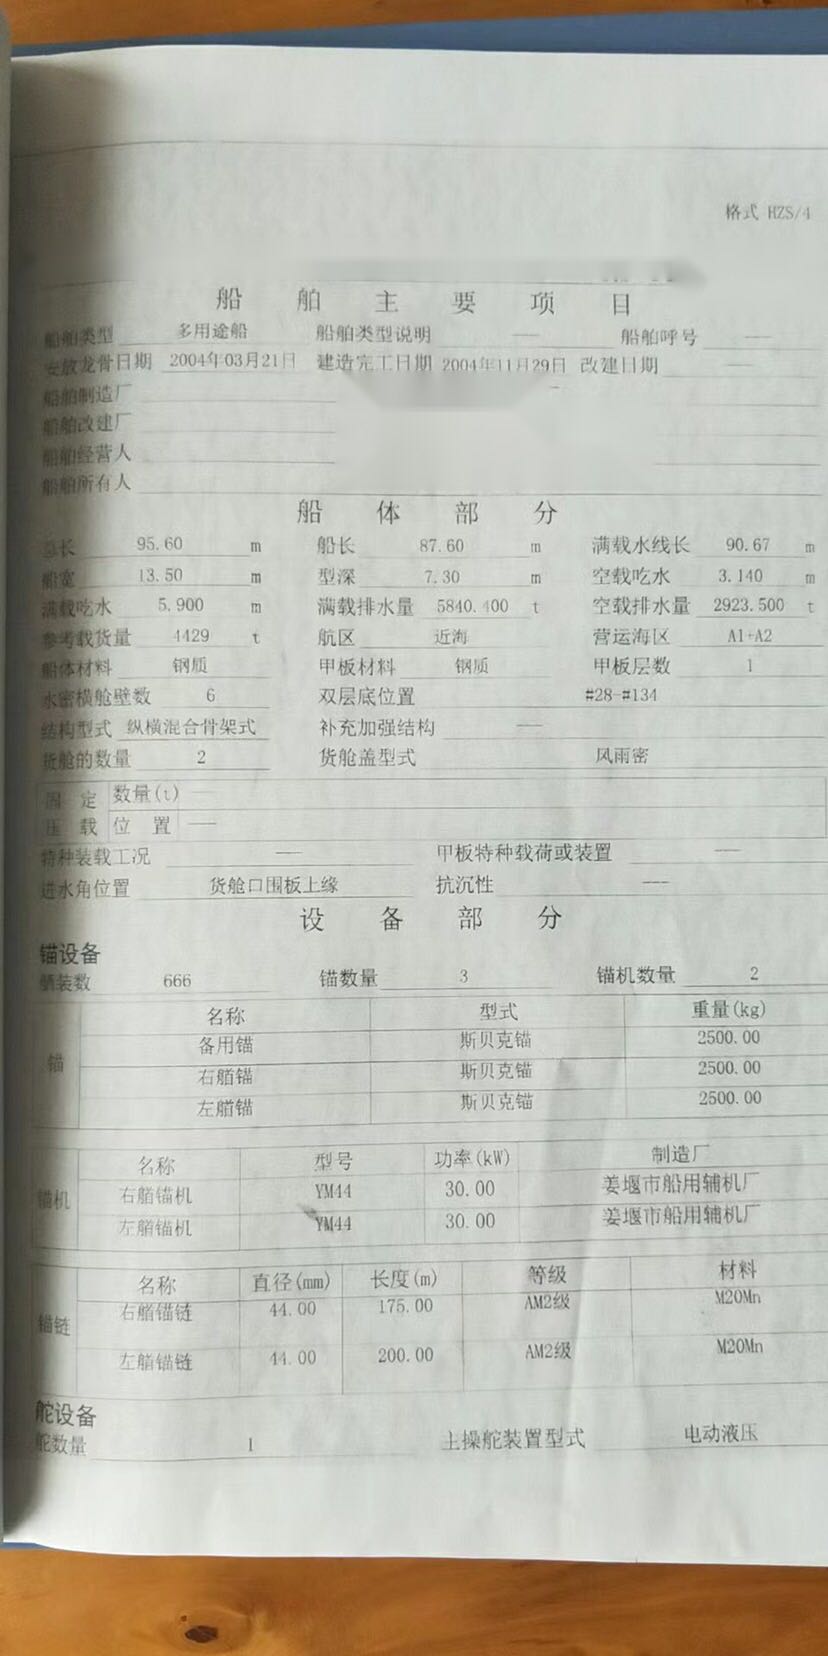 格式 HZS/4
船舶主要项目
船舶类型 多用途船 船舶类型说明 —— 船舶呼号 ——
安放龙骨日期 2004年03月21日 建造完工日期 2004年11月29日 改建日期 ——
船舶制造厂
船舶改建厂
船舶经营人
船舶所有人
船体部分
总长 95.60 m 船长 87.60 m 满载水线长 90.67 m
船宽 13.50 m 型深 7.30 m 空载吃水 3.140 m
满载吃水 5.900 m 满载排水量 5840.400 t 空载排水量 2923.500 t
参考载货量 4429 t 航区 近海 营运海区 A1+A2
船体材料 钢质 甲板材料 钢质 甲板层数 1
水密横舱壁数 6 双层底位置 #28-#134
结构型式 纵横混合骨架式 补充加强结构 ——
货舱的数量 2 货舱盖型式 风雨密
固定 数量(t) ——
压载 位置 ——
特种装载工况 —— 甲板特种载荷或装置 ——
进水角位置 货舱口围板上缘 抗沉性 ——
设备部分
锚设备
舾装数 666 锚数量 3 锚机数量 2
名称 型式 重量(kg)
备用锚 斯贝克锚 2500.00
锚 右艏锚 斯贝克锚 2500.00
左艏锚 斯贝克锚 2500.00
名称 型号 功率(kW) 制造厂
锚机 右艏锚机 YM44 30.00 姜堰市船用辅机厂
左艏锚机 YM44 30.00 姜堰市船用辅机厂
名称 直径(mm) 长度(m) 等级 材料
锚链 右艏锚链 44.00 175.00 AM2级 M20Mn
左艏锚链 44.00 200.00 AM2级 M20Mn
舵设备
舵数量 1 主操舵装置型式 电动液压